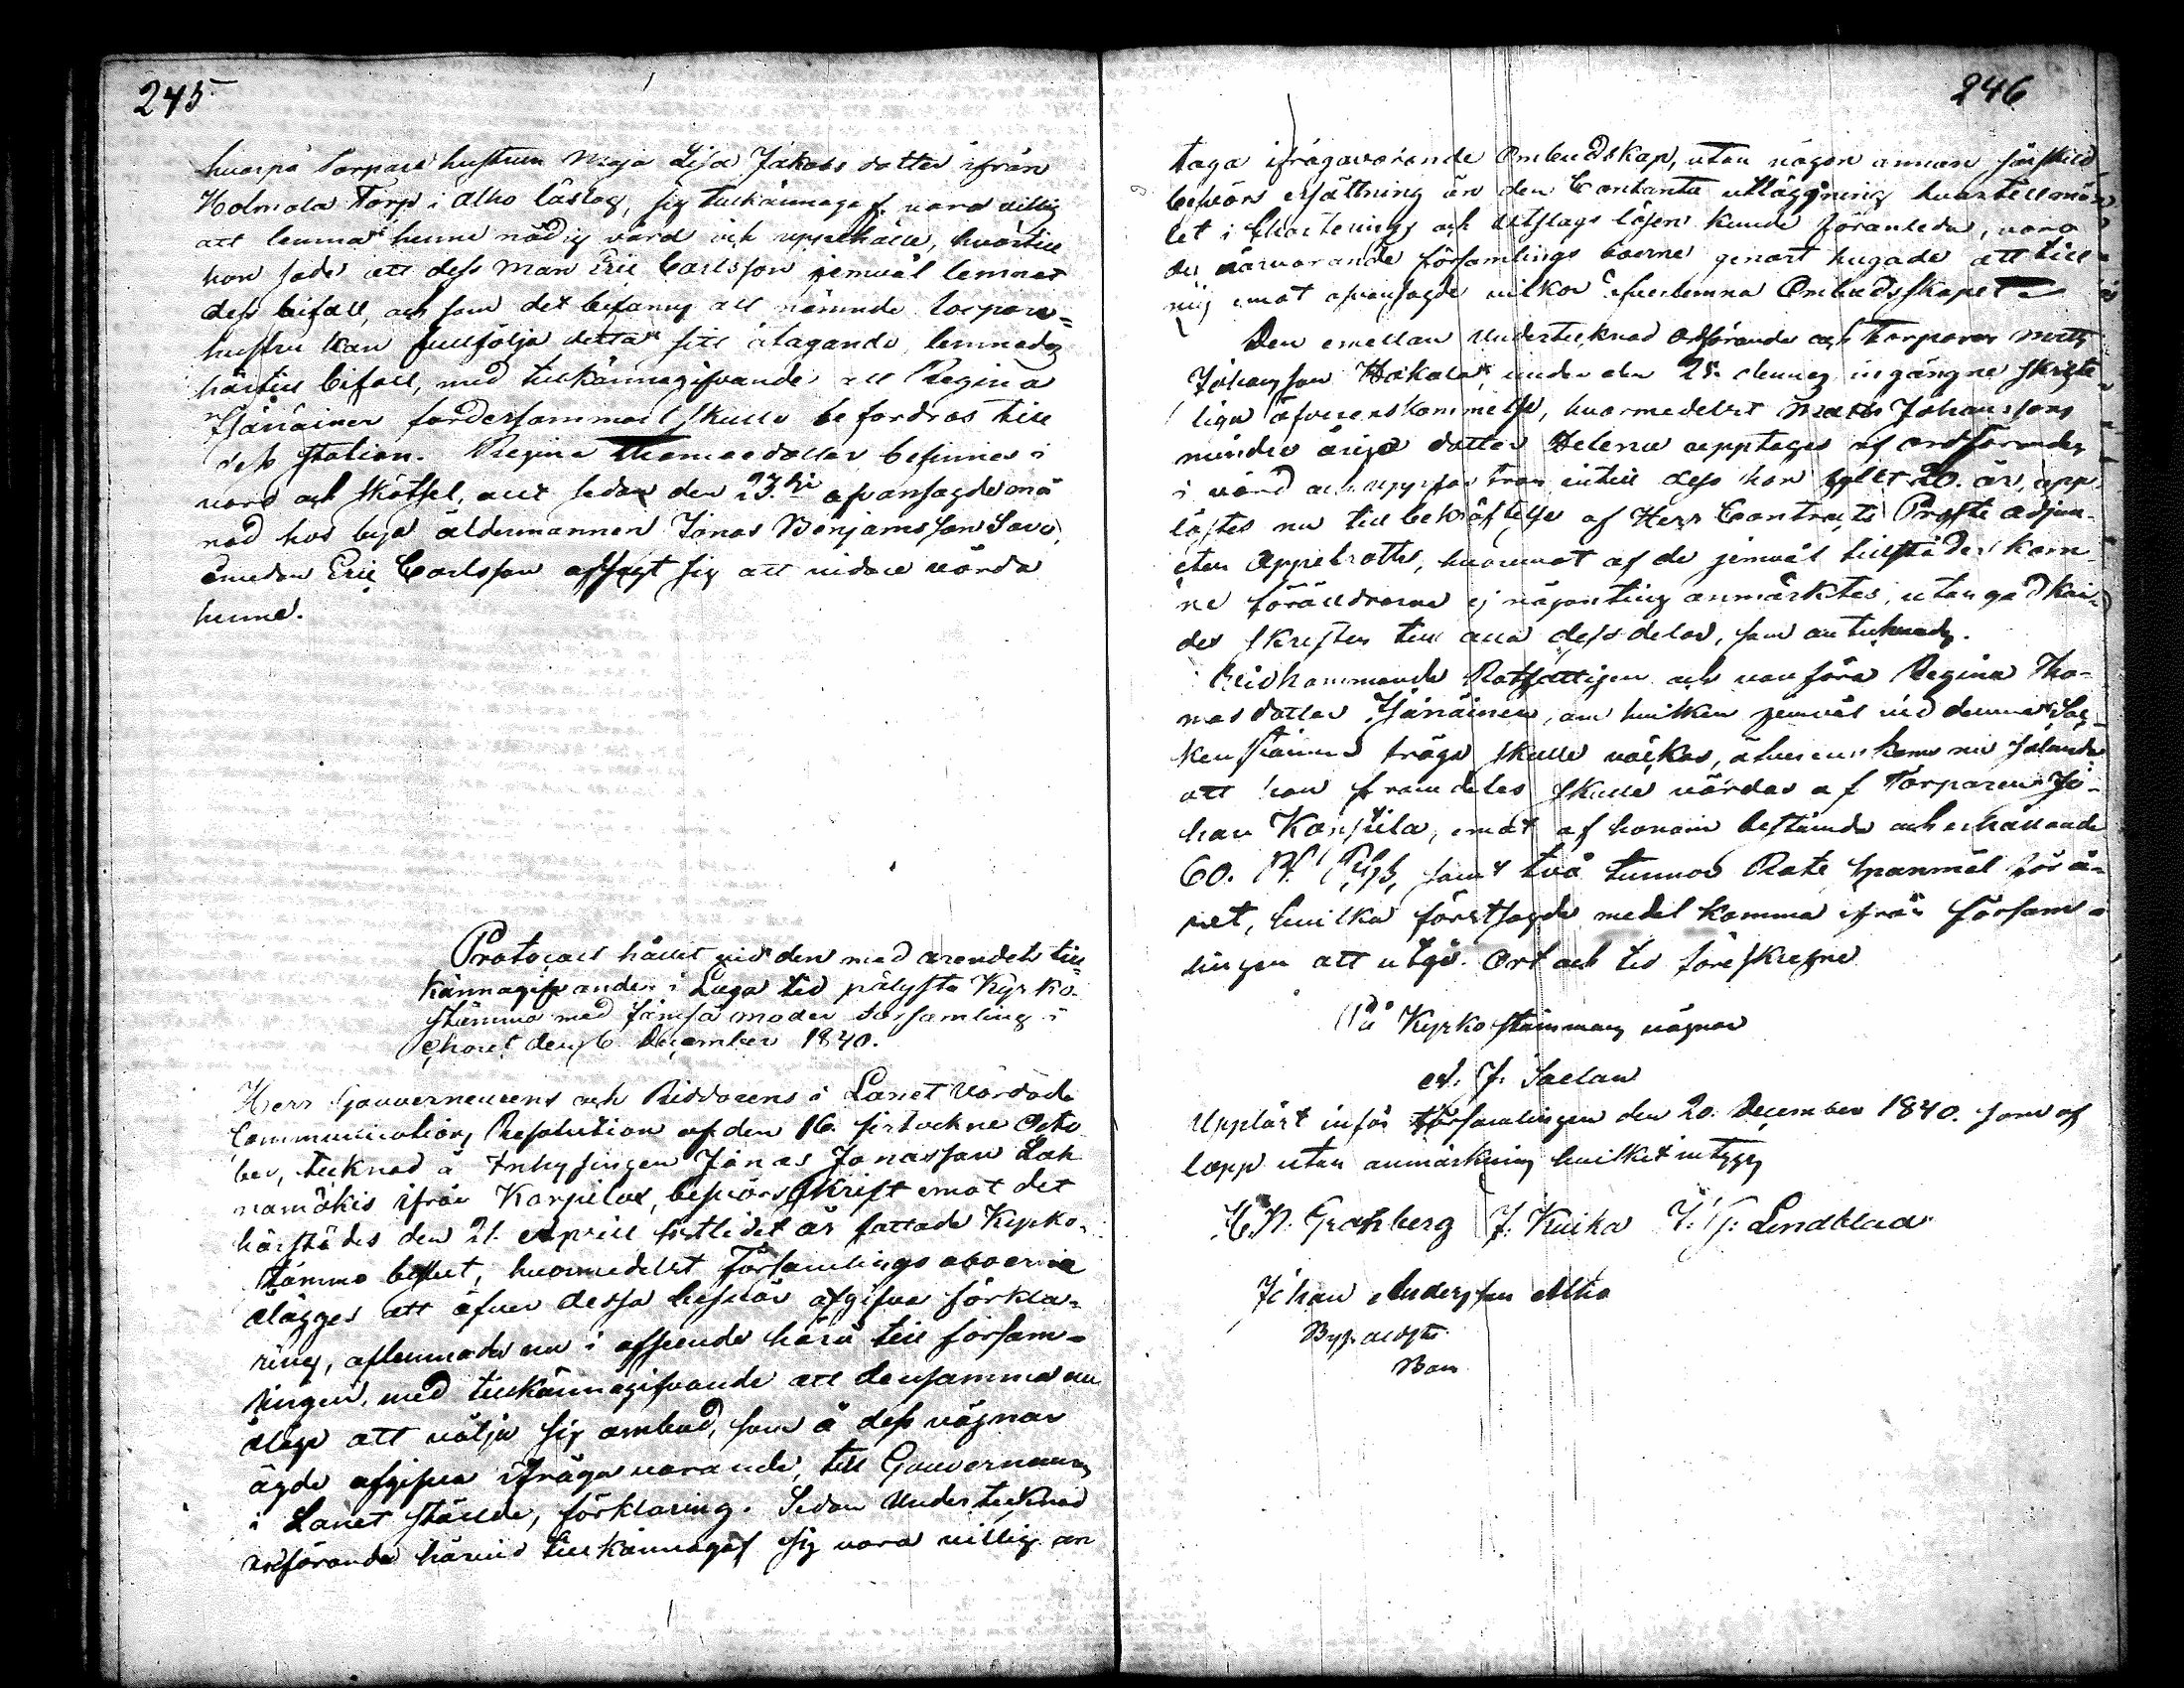 245
hvarpå Torpare hustrun Maja Lisa Jakobs dotter ifrån
Holmola Torp i Alho läslag, sig tillkännagaf vara villig
att lemna henne nödig vård och uppehälle, hvartill
hon sade att dess man Eric Carlsson jemväl lemnat
dess bifall, och som det befanns att nämnde torpare=
hustru kan fullfölja detta sitt åtagande, lemnades
härtill bifall, med tillkännagifvande att Regina
fordersammast skulle befordras till
dess station. Regina Thomasdotter befinnes i
vård och skötsel, allt sedan den 23.de ofvansagde må
nad hos bys åldermannen Jonas Benjamsson Savo,
emedan Eric Carlsson afsagt sig att vidare vårda
henne.
Protocoll hållet vid den med ärendets till
kännagifvande i Laga tid pålysta Kyrko-
stämma med Jämsä moder församling i
Choret den 6 December 1840.
Herr Gouverneurens och Riddarens i Länet Vördade
Communications Resolution af den 16. sistvekne Octo
ber, tecknad å Inhysingen Jonas Jonasson
ifrån Karpilax, besvärs skrift emot det
härstädes den 21. April sistlidet år fattade Kyrko-
stämmo beslut, hvarmedelst Församlings aboerne
ålägges att öfver dessa besvär afgifva förkla=
ring, aflemnades nu i afseende härå till försam=
lingen, med tillkännagifvande att densamma nu
ålåge att välja sig ombud, som å dess vägnar
ägde afgifva ifrågavarande, till Gouverneuren
i Länet ställde, förklaring. Sedan Undertecknad
ordförande härvid tillkännagaf sig vara villig an
246
taga ifrågavarande Ombudskap, utan någon annan särskild
besvärs ersättning än den Contanta utläggning hvartill må
let i och utslags lösen kunde föranleda, voro
de närvarande församlings boerne genast hugade att till
mig emot ofvansagde vilkor öfverlemna Ombudsskapet
Den emellan Undertecknad Ordförande och Torparen Matts
Johansson Hakala, under den 25. dennes ingångne skrift
liga öfverenskommelse, hvarmedelst Matts Johanssons
minder åriga dotter Helena upptages af ordföranden
i vård och uppfostran intill dess hon fyllt 20. år, upp
lästes nu till bekräftelse af Herr Contracts Prosts Adjunc
ten Appelroth, hvaremot af de jemväl tillstädes kom
ne föräldrarne ej någonting anmärktes, utan godkän
des skriften till alla dess delar, som antecknades.
Rotfattigen och vanföra Regina Tho=
mas dotter, om hvilken jemväl vid denna Soc
kenstämma fråga skulle väckas, öfverenskoms nu sålunda
att hon framdeles skulle vårdas af Torparen Jo-
han Konsula, emot af honom bestämde och erhållande
60. samt två tunnor Rote spanmål för å=
ret, hvilka förstsagde medel komma ifrån försam=
lingen att utgå. Ort och tid föreskrefne
På Kyrkostämmans vägnar
J. Saelan
Uppläst inför församlingen den 20. December 1840. som af
lopp utan anmärkning hvilket intyga
Grahberg J. Kuika Lindblad
Johan Andersson Alho
Byålderm
Bom